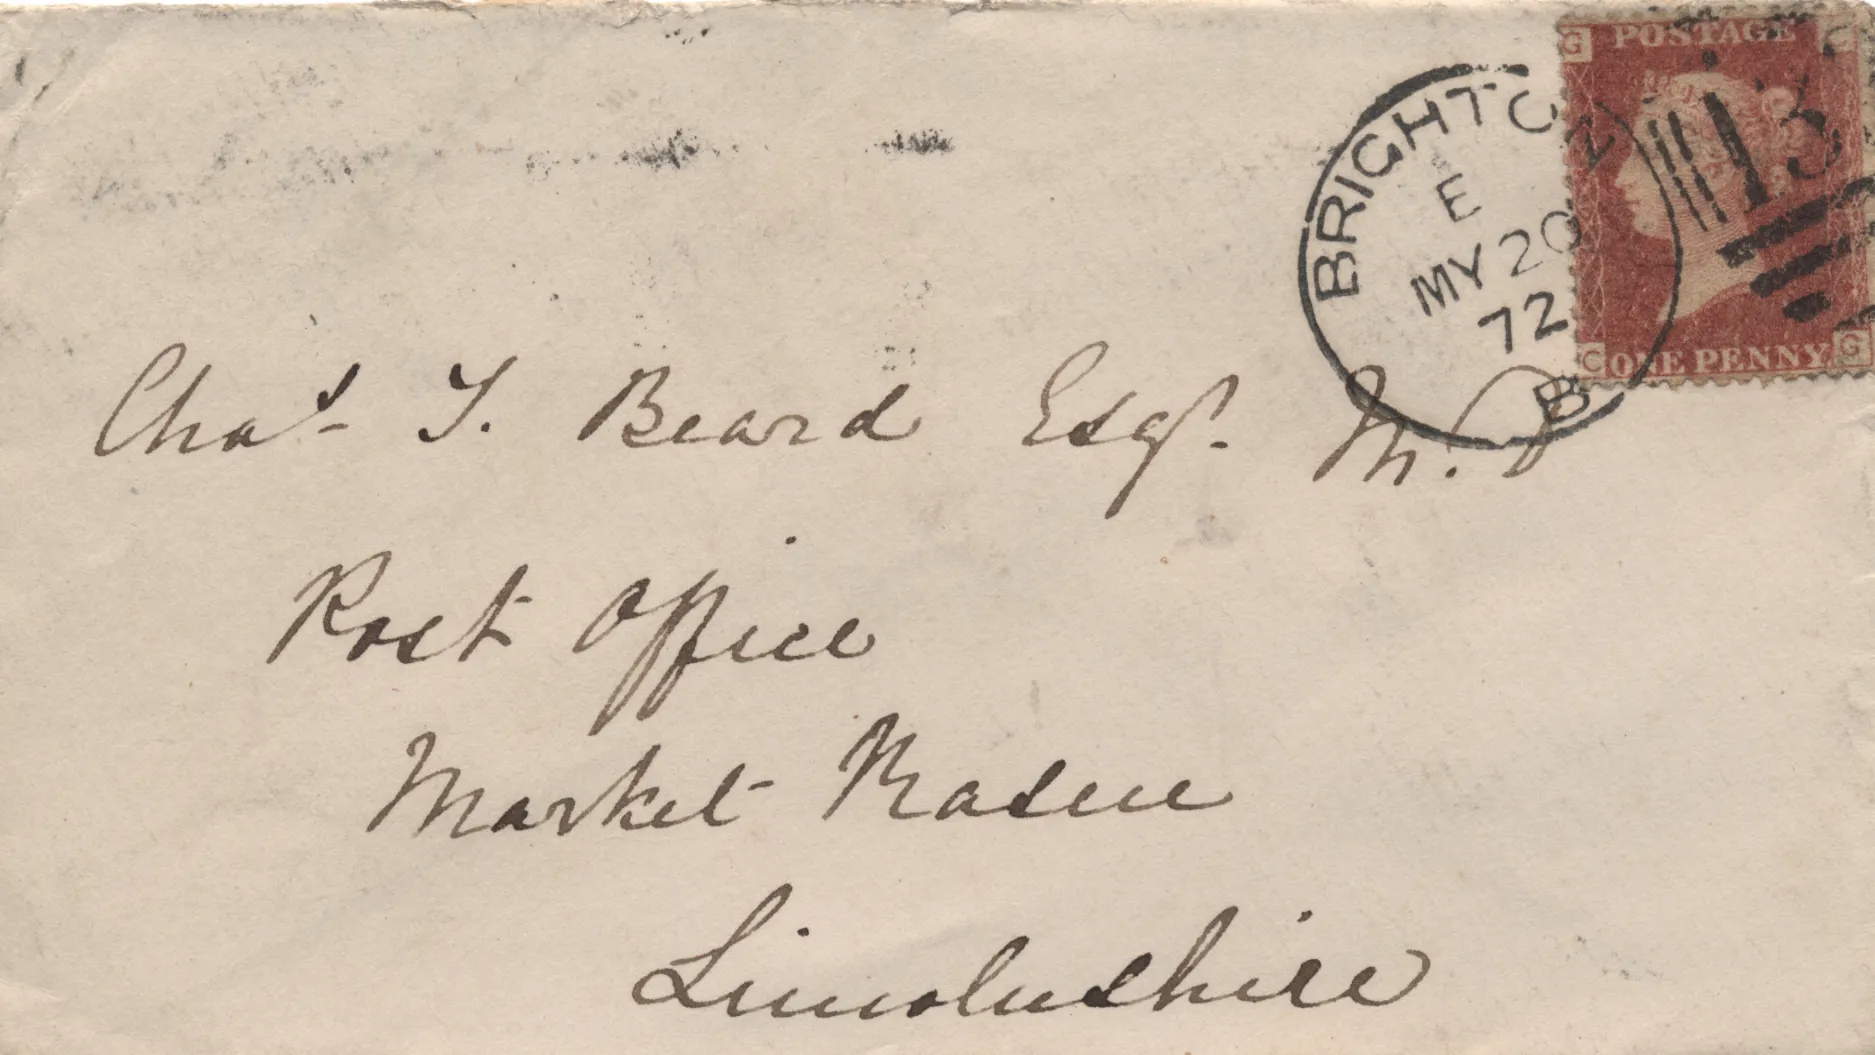 G POSTAGE C
13
BRIGHTON
E
MY 20
72
B
C ONE PENNY G
Chas. T. Beard Esqr. M.D
Post Office
Market Rasen
Lincolnshire